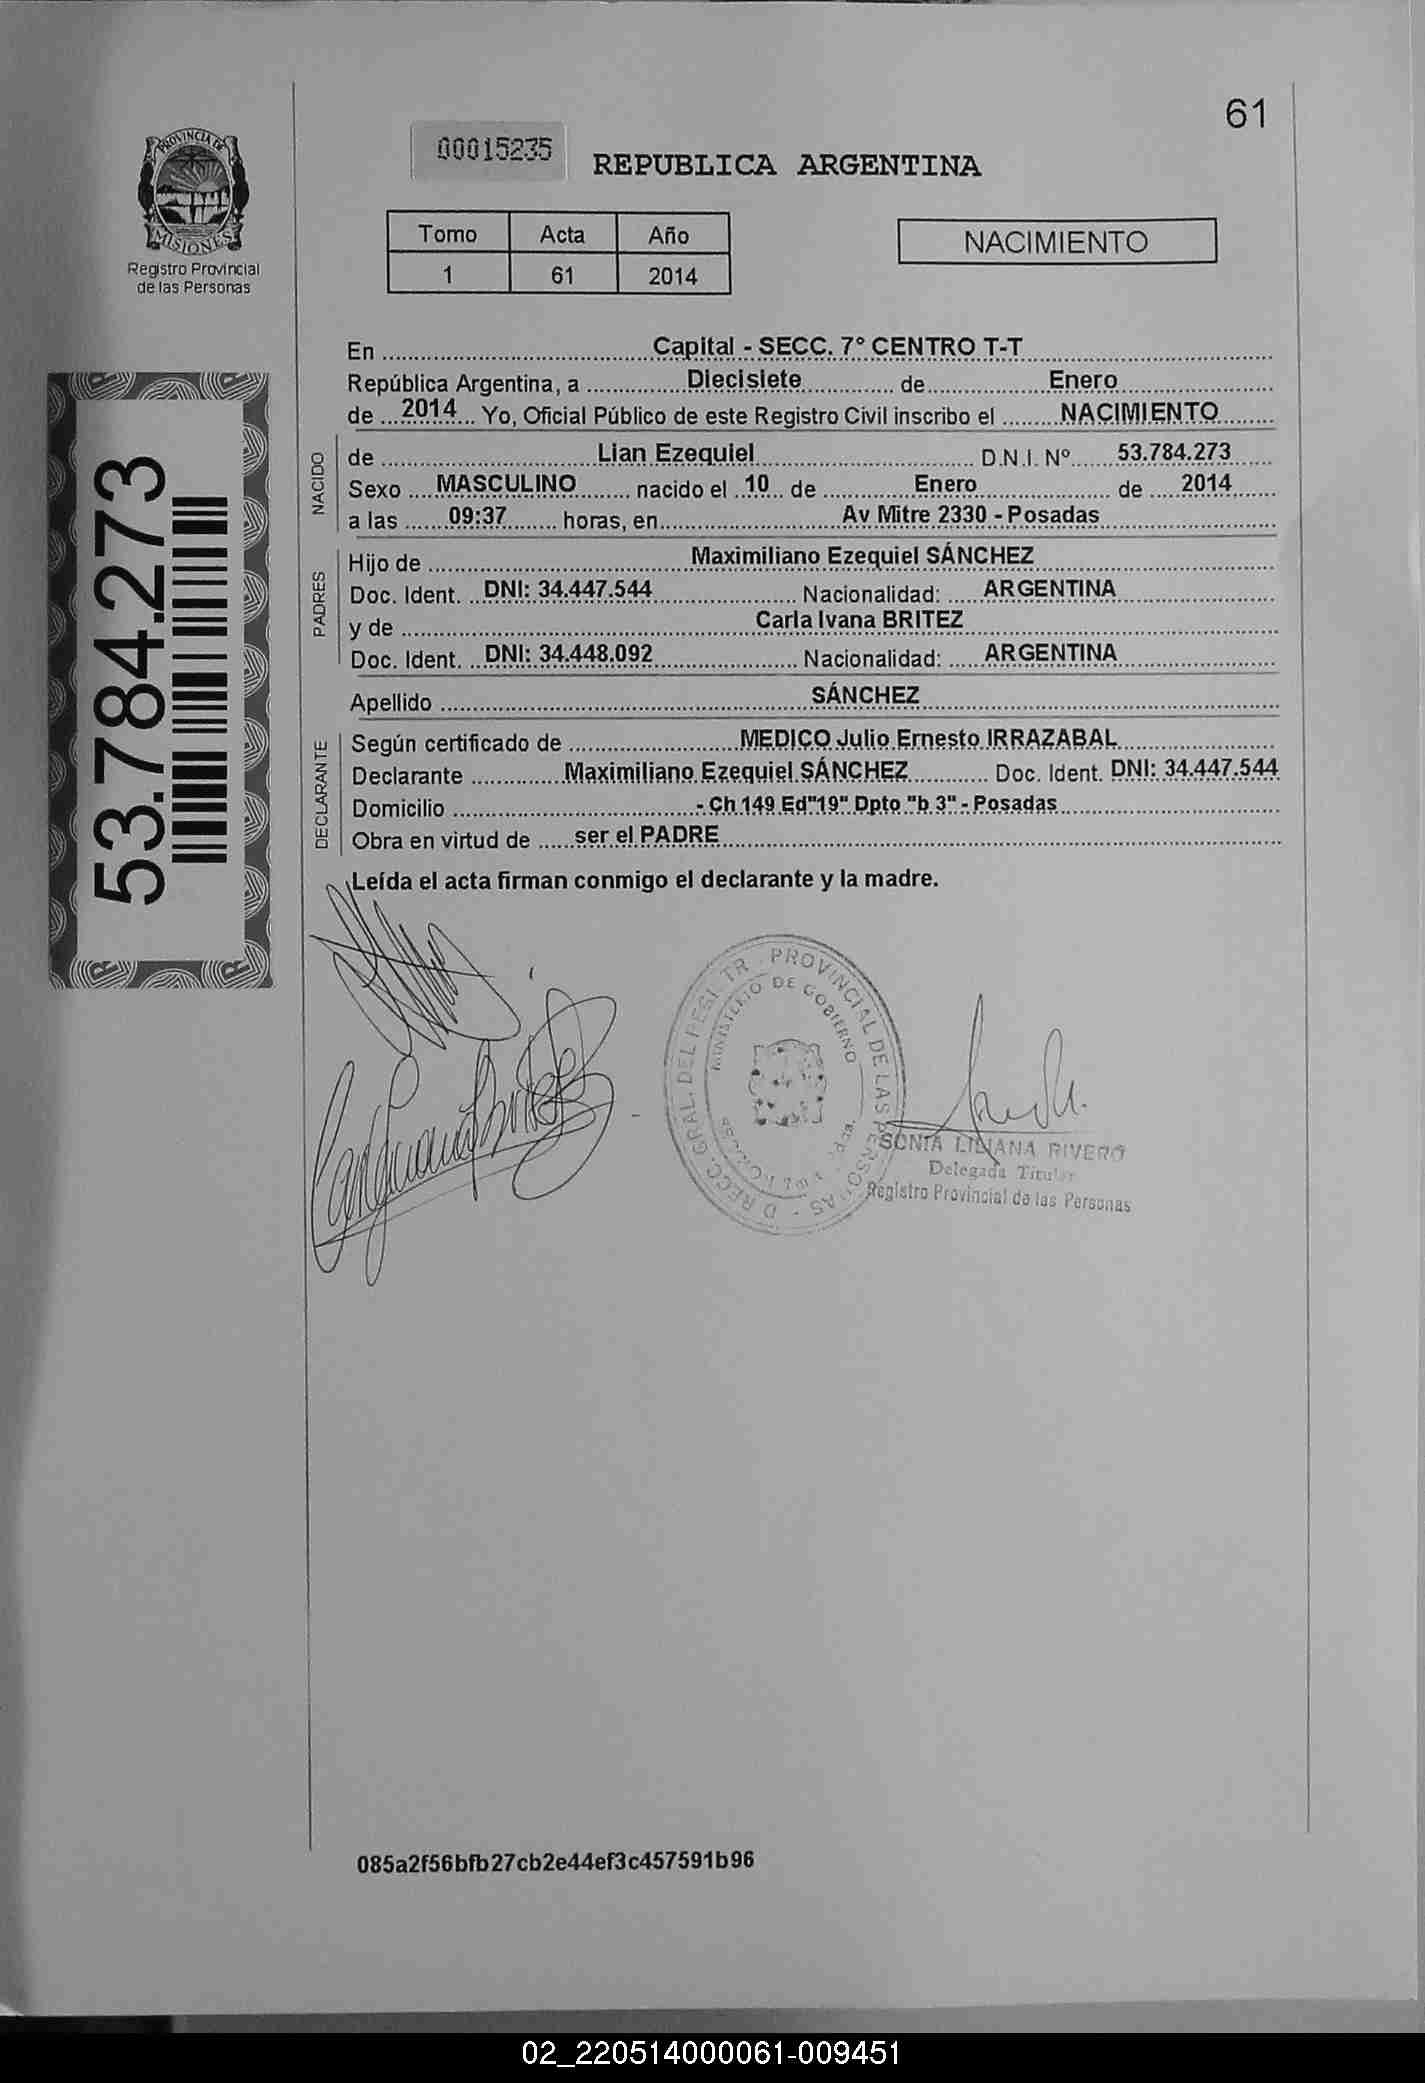 61
00015235
REPUBLICA ARGENTINA
PROVINCIA DE
MISIONES
Registro Provincial
de las Personas
Tomo Acta Año
1 61 2014
NACIMIENTO
En Capital - SECC. 7° CENTRO T-T
República Argentina, a Diecisiete de Enero
de 2014 Yo, Oficial Público de este Registro Civil inscribo el NACIMIENTO
NACIDO
de Lian Ezequiel D.N.I. Nº 53.784.273
Sexo MASCULINO nacido el 10 de Enero de 2014
a las 09:37 horas, en Av Mitre 2330 - Posadas
PADRES
Hijo de Maximiliano Ezequiel SÁNCHEZ
Doc. Ident. DNI: 34.447.544 Nacionalidad: ARGENTINA
y de Carla Ivana BRITEZ
Doc. Ident. DNI: 34.448.092 Nacionalidad: ARGENTINA
Apellido SÁNCHEZ
DECLARANTE
Según certificado de MEDICO Julio Ernesto IRRAZABAL
Declarante Maximiliano Ezequiel SÁNCHEZ Doc. Ident. DNI: 34.447.544
Domicilio - Ch 149 Ed"19" Dpto "b 3" - Posadas
Obra en virtud de ser el PADRE
Leída el acta firman conmigo el declarante y la madre.
53.784.273
PROVINCIAL DE LAS PERSONAS
MINISTERIO DE GOBIERNO
SONIA LILIANA RIVERO
Delegada Titular
Registro Provincial de las Personas
085a2f56bfb27cb2e44ef3c457591b96
02_220514000061-009451